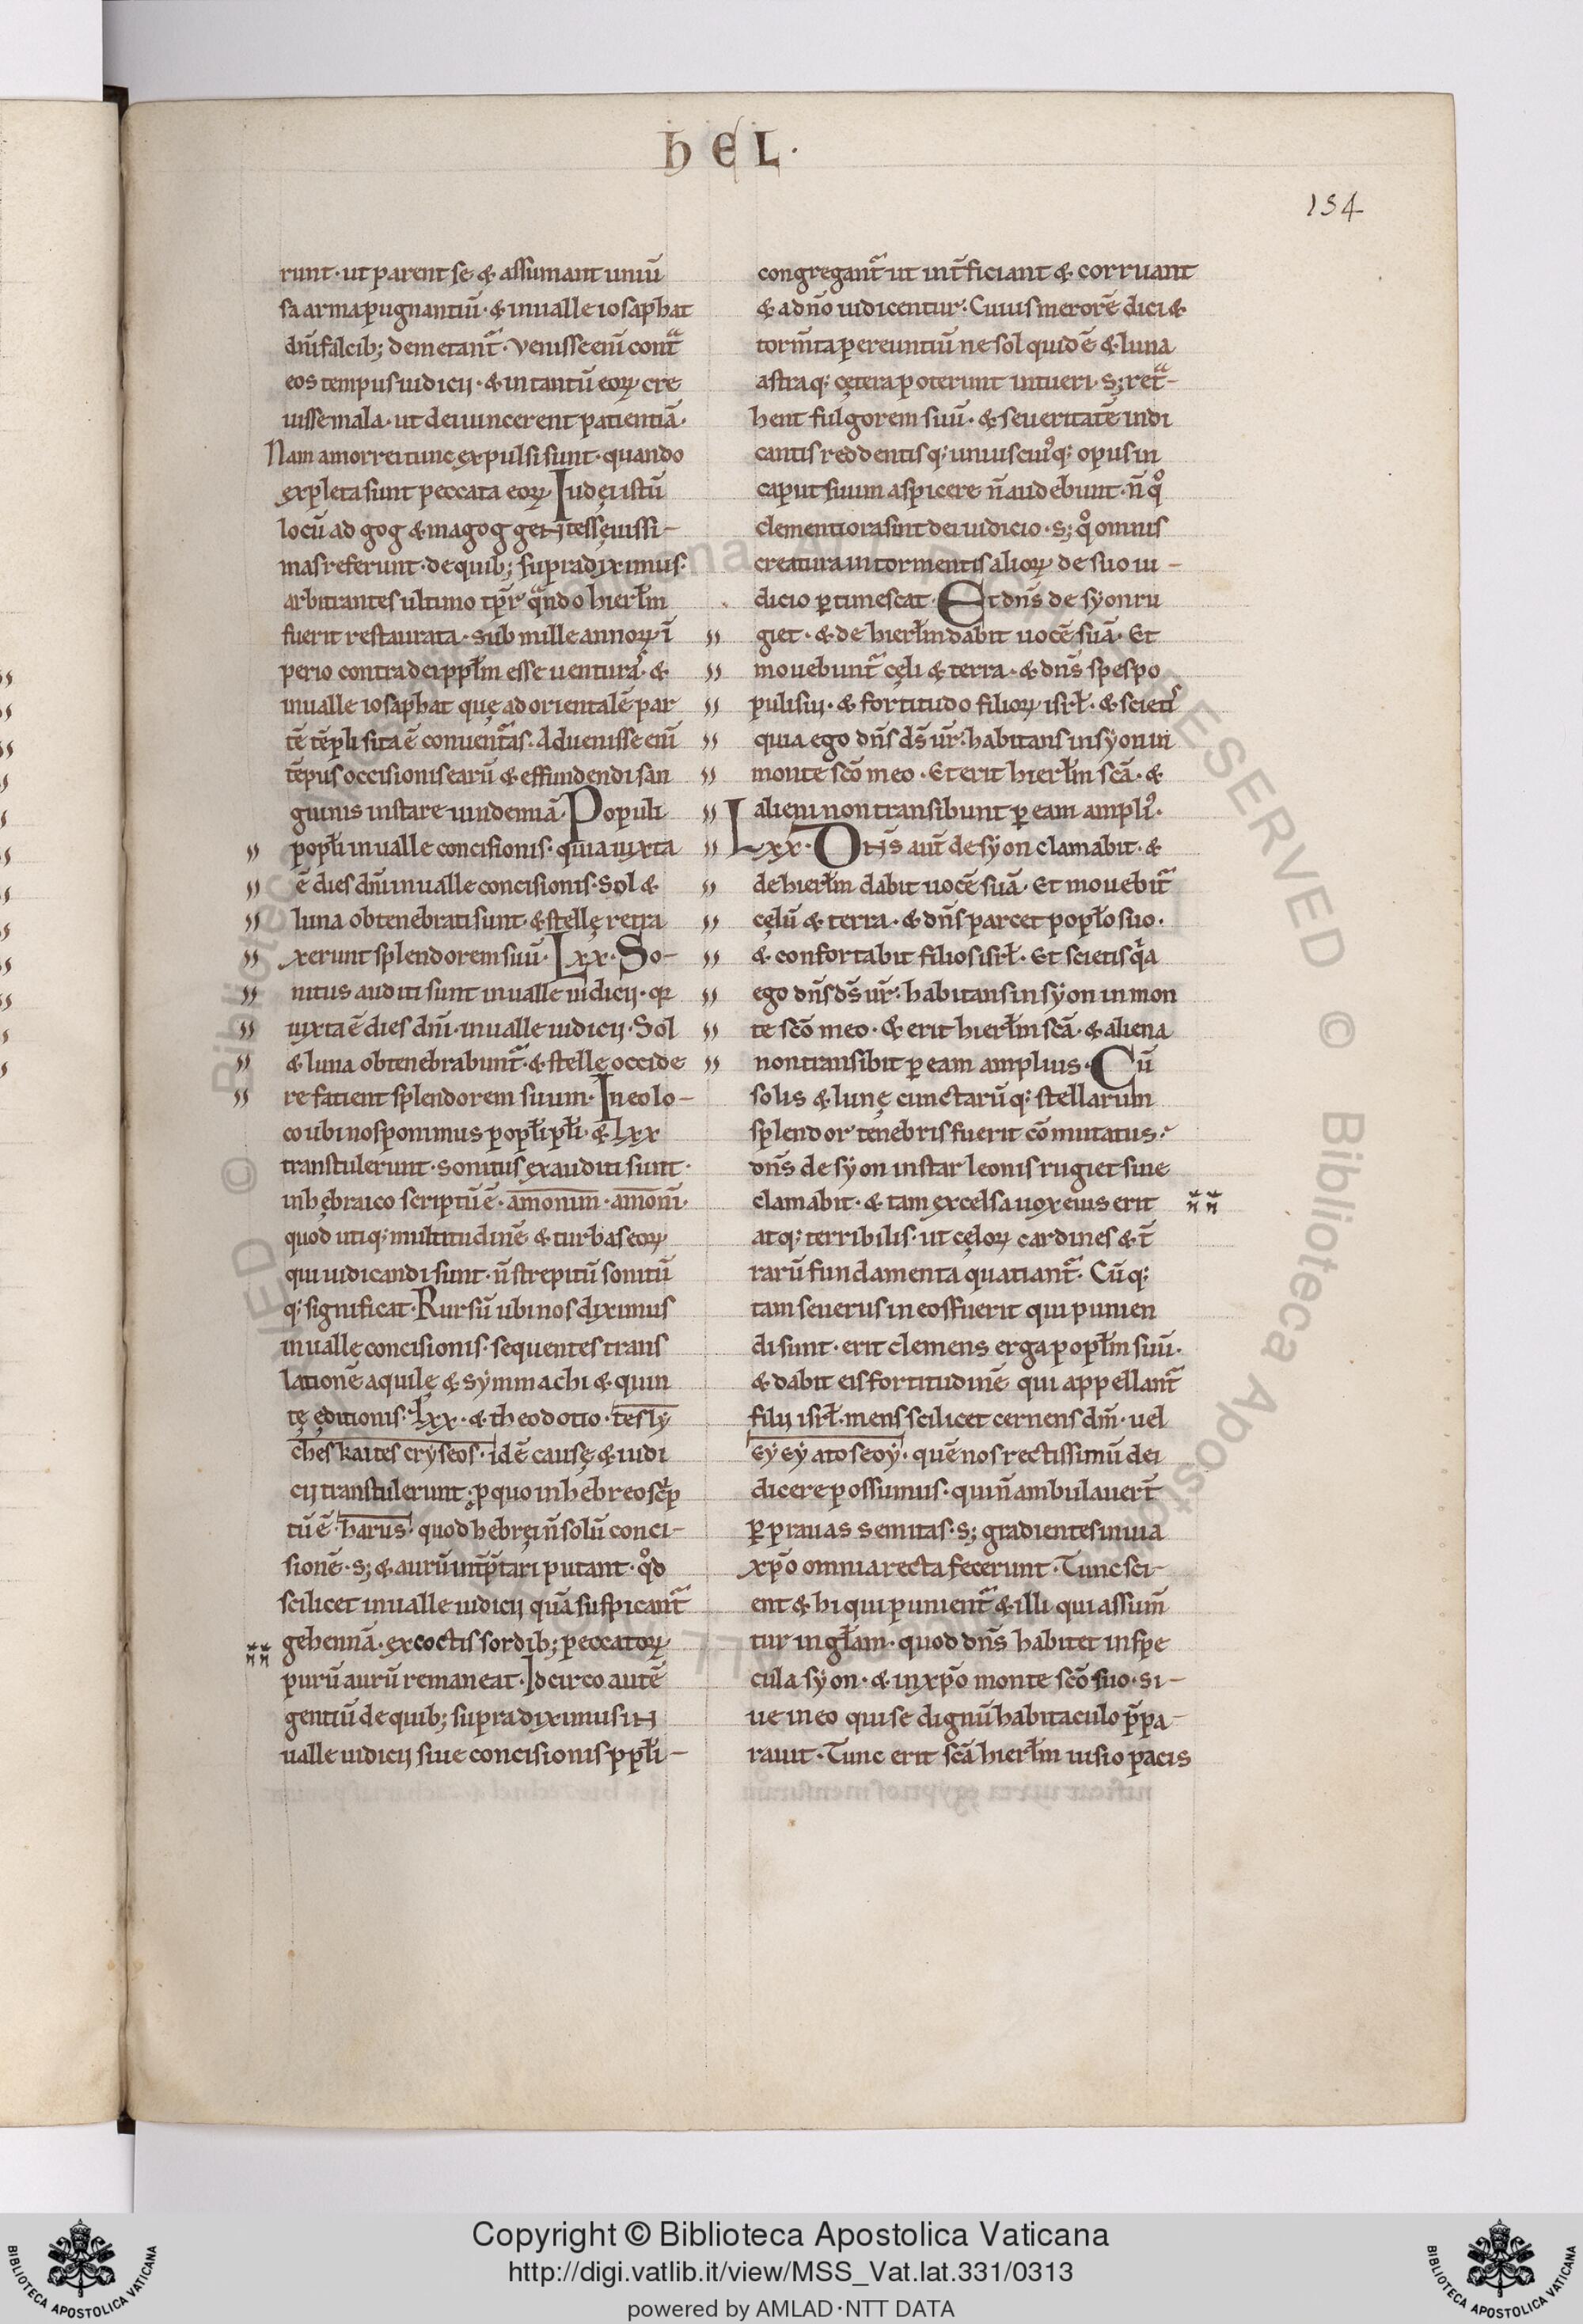 hEL·
154
runt · ut parent se & assumant uniū
sa arma pugnantiū · & inualle iosaphat
dn̄i falcib; demetant᷑ · Venisse eni᷑ cont̄ᵃ
eos tempus iudicij · & intantū eoꝝ cre
uisse mala · ut dei uincerent patientiā ·
Nam amorrei tunc expulsi sunt · quando
expleta sunt peccata eoꝝ Iudęi istū
locū ad gog & magog gentes sęuissi-
mas referunt · de quib; supradiximus ·
arbitrantes ultimo tp̄r qᵃndo hierl̄m
fuerit restaurata · sub mille annoꝝ ī
perio contra dei ppl̄m esse uenturas · &
inualle iosaphat quę ad orientalē par
tē tēpli sita ē conuent᷑as · Aduenisse enī
tēpus occisionis earū & effundendi san
guinis instare uindemiā · Populi
popl̄i inualle concisionis · quia iuxta
ē dies dn̄i inualle concisionis · Sol &
luna obtenebrati sunt · & stellę retra
xerunt splendorem suū · Lxx · So-
nitus auditi sunt inualle iudicij · qꝛ
iuxta ē dies dn̄i · inualle iudicij · Sol
& luna obtenebrabunt᷑ · & stellę occide
re facient splendorem suum · In eo lo-
co ubi nos ponimus popl̄i pl̄i · & Lxx
transtulerunt · sonitus exauditi sunt ·
in hębraico scriptū ē · amonim · amonī ·
quod utiq; multitudinē & turbas eoꝝ
qui iudicandi sunt · n̄ strepitū sonitū
q; significat · Rursū ubi nos diximus
inualle concisionis · sequentes trans
lationē aquilę & sẏmmachi & quin
tę ęditionis · Lxx · & theodotio · teslẏ
cheskaites crẏseos · idē causę & iudi
cij transtulerunt · p̱ quo in hebreo sc̄p
tū ē · harus · quod hebręi n̄ solū conci-
sionē · s; & aurū int̄p̄tari putant · qͦd
scilicet inualle iudicij quā suspicant᷑
gehennā · excoctis sordib; peccatoꝝ
purū aurū remaneat · Idcirco autē
gentiū de quib; supradiximus in
ualle iudicij siue concisionis ppl̄i -
congregant᷑ ut int̄ficiant & corruant
& adn̄o iudicentur · Cuius merorē dici &
torm̄ta ꝑereuntiū ne sol quidē & luna
astraq; cętera poterunt intueri · s; ret̄ᵃ-
hent fulgorem suū · & seueritatē iudi
cantis reddentisq; uniuscui᾿q; opus in
caput suum aspicere n̄ audebunt · n̄ qͦ
clementiora sint dei iudicio · s; qͦ omnis
creatura in tormentis alioꝝ de suo iu -
dicio ꝑtimescat · Et dn̄s de sẏon ru
giet · & de hierl̄m dabit uocē suā · Et
mouebunt᷑ cęli & terra · & dn̄s spes po
puli sui · & fortitudo filioꝝ isrl̄ · & scietiˢ
quia ego dn̄s ds̄ ur̄ · habitans in sẏon in
monte sc̄o meo · Et erit hierl̄m sc̄a · &
alieni non transibunt ꝑ eam ampli᾿ ·
Lxx · Dn̄s aut̄ de sẏon clamabit · &
de hierl̄m dabit uocē suā · Et mouebit᷑
cęlū & terra · & dn̄s parcet popl̄o suo ·
& confortabit filios isrl̄ · Et scietis qⁱa
ego dn̄s ds̄ ur̄ · habitans in sẏon in mon
te sc̄o meo · & erit hierl̄m sc̄a · & aliena
non transibit ꝑ eam amplius · Cū
solis & lunę cunctarūq; stellarum
splendor tenebris fuerit cōmutatus ·
dn̄s de sẏon instar leonis rugiet siue
clamabit · & tam excelsa uox eius erit
atq; terribilis · ut cęloꝝ cardines & t̄
rarū fundamenta quatiant᷑ · Cūq;
tam seuerus in eos fuerit qui punien
di sunt · erit clemens erga popl̄m suū ·
& dabit eis fortitudinē qui appellant᷑
filij isrl̄ · mens scilicet cernens dm̄ · uel
eẏeẏatoseoẏ · quē nos rectissimū dei
dicere possumus · qui n̄ ambulauer̄t
ꝑ prauas semitas · s; gradientes in uia
xp̄o omnia recta fecerunt · Tunc sci-
ent & hi qui punient᷑ & illi qui assum̄
tur in gl̄am · quod dn̄s habitet in spe
cula sẏon · & in xp̄o monte sc̄o suo · si -
ue in eo qui se dignū habitaculo p̄pa-
rauit · Tunc erit sc̄a hierl̄m uisio pacis
Copyright © Biblioteca Apostolica Vaticana
http://digi.vatlib.it/view/MSS_Vat.lat.331/0313
powered by AMLAD·NTT DATA